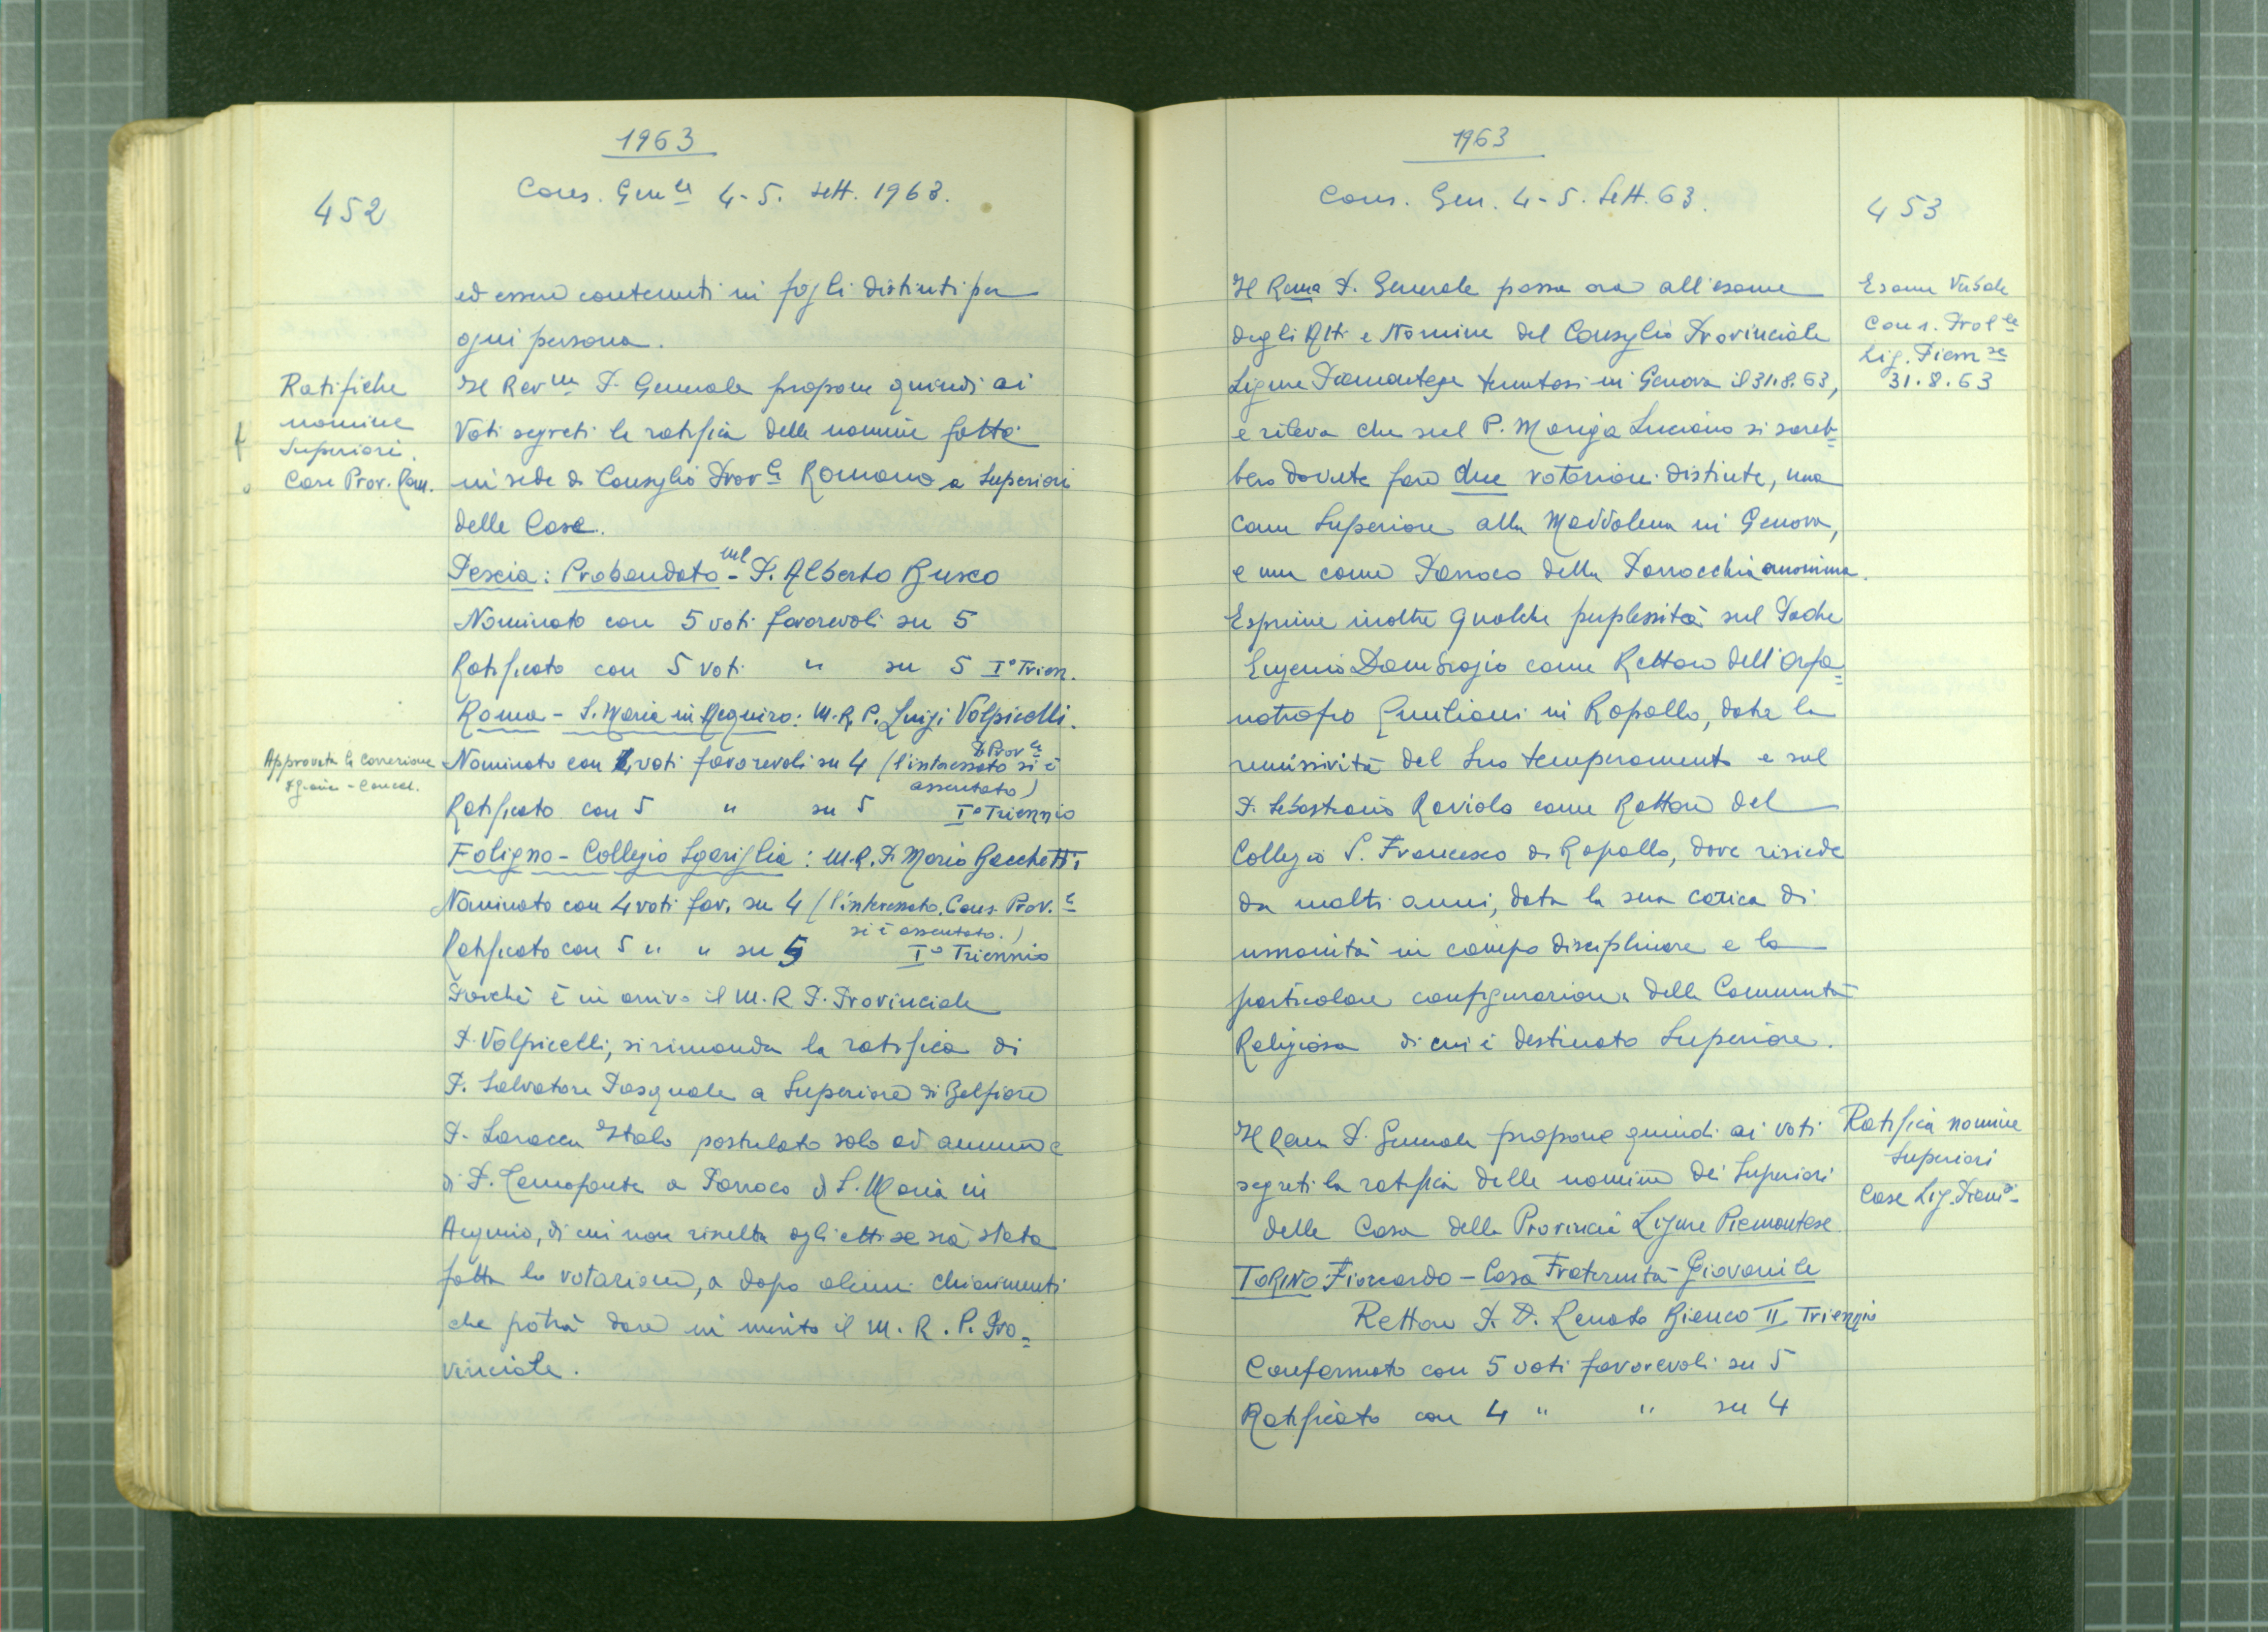 1963
452
Cons. Gen.le 4-5. Sett. 1963.
ed essere contenuti in fogli distinti per
ogni persona.
Ratifiche
nomine
Superiori.
Case Prov. Rom.
Il Rev.mo P. Generale propone quindi ai
Voti segreti la ratifica delle nomine fatte
in sede di Consiglio Prov.le Romano a Superiori
delle Case.
Pescia: Probandato - P. Alberto Busco
Nominato con 5 voti favorevoli su 5
Ratificato con 5 voti " su 5 I° Trien.
Roma - S. Maria in Aequiro: M.R.P. Luigi Volpicelli.
Approvata la correzione
Nominato con 4 voti favorevoli su 4 (l'interessato P. Prov.le si è
assentato)
Ratificato con 5 " su 5 I° Triennio
Foligno - Collegio Sgariglia: M.R.P. Mario Bacchetti
Nominato con 4 voti fav. su 4 (l'interessato, Cons. Prov.le
si è assentato.)
Ratificato con 5 " " su 5 I° Triennio
Poichè è in arrivo il M.R.P. Provinciale
P. Volpicelli, si rimanda la ratifica di
P. Salvatore Pasquale a Superiore di Belfiore
P. Laracca Italo postulato solo ad annum e
di P. a Parroco di S. Maria in
Aequiro, di cui non risulta agli atti se sia stata
fatta la votazione, a dopo alcuni chiarimenti
che potrà dare in merito il M.R.P. Pro=
vinciale.
1963
Cons. Gen. 4-5. Sett. 63.
453
Esame Verbale
Cons. Prov.le
Lig. Piem.se
31.8.63
Il Rev.mo P. Generale passa ora all'esame
degli Atti e Nomine del Consiglio Provinciale
Ligure Piemontese tenutosi in Genova il 31.8.63,
e rileva che sul P. Mariga Luciano si sareb=
bero dovute fare due votazioni distinte, una
come Superiore alla Maddalena in Genova,
e una come Parroco della Parrocchia omonima.
Esprime inoltre qualche perplessità sul Padre
Eugenio Dambragio come Rettore dell'Orfa=
notrofio Emiliani in Rapallo, data la
remissività del suo temperamento e sul
P. Sebastiano Raviolo come Rettore del
Collegio S. Francesco di Rapallo, dove risiede
da molti anni, data la sua carica di
umanità in campo disciplinare e la
particolare configurazione della Comunità
Religiosa di cui è destinato Superiore.
Ratifica nomine
Superiori
Case Lig. Piem.si
Il Rev.mo P. Generale propone quindi ai voti
segreti la ratifica delle nomine dei Superiori
delle Case della Provincia Ligure Piemontese
TORINO Fioccardo - Casa Fraternità Giovanile
Rettore P. D. Renato Bianco II Triennio
Confermato con 5 voti favorevoli su 5
Ratificato con 4 " " su 4